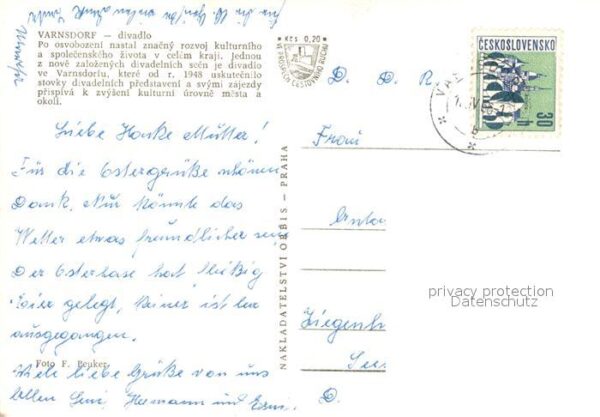 VARNSDORF — divadlo
Po osvobození nastal značný rozvoj kulturního
a společenského života v celém kraji. Jednou
z nově založených divadelních scén je divadlo
ve Varnsdorfu, které od r. 1948 uskutečnilo
stovky divadelních představení a svými zájezdy
přispívá k zvýšení kulturní úrovně města a
okolí.
Liebe Hanke Mutter!
Für die Ostergrüße schönen
Dank. Nur könnte das
Wetter etwas freundlicher sein
Der Osterhase hat fleißig
Eier gelegt, keiner ist leer
ausgegangen.
Viele liebe Grüße von uns
allen Hermann und
Foto F. Peuker
NAKLADATELSTVÍ ORBIS — PRAHA
Kčs 0,20
VE PROSPĚCH CESTOVNÍHO RUCHU
ČESKOSLOVENSKO
30 h
D. D. R.
Frau
Ziegenh
See
D.
privacy protection
Datenschutz